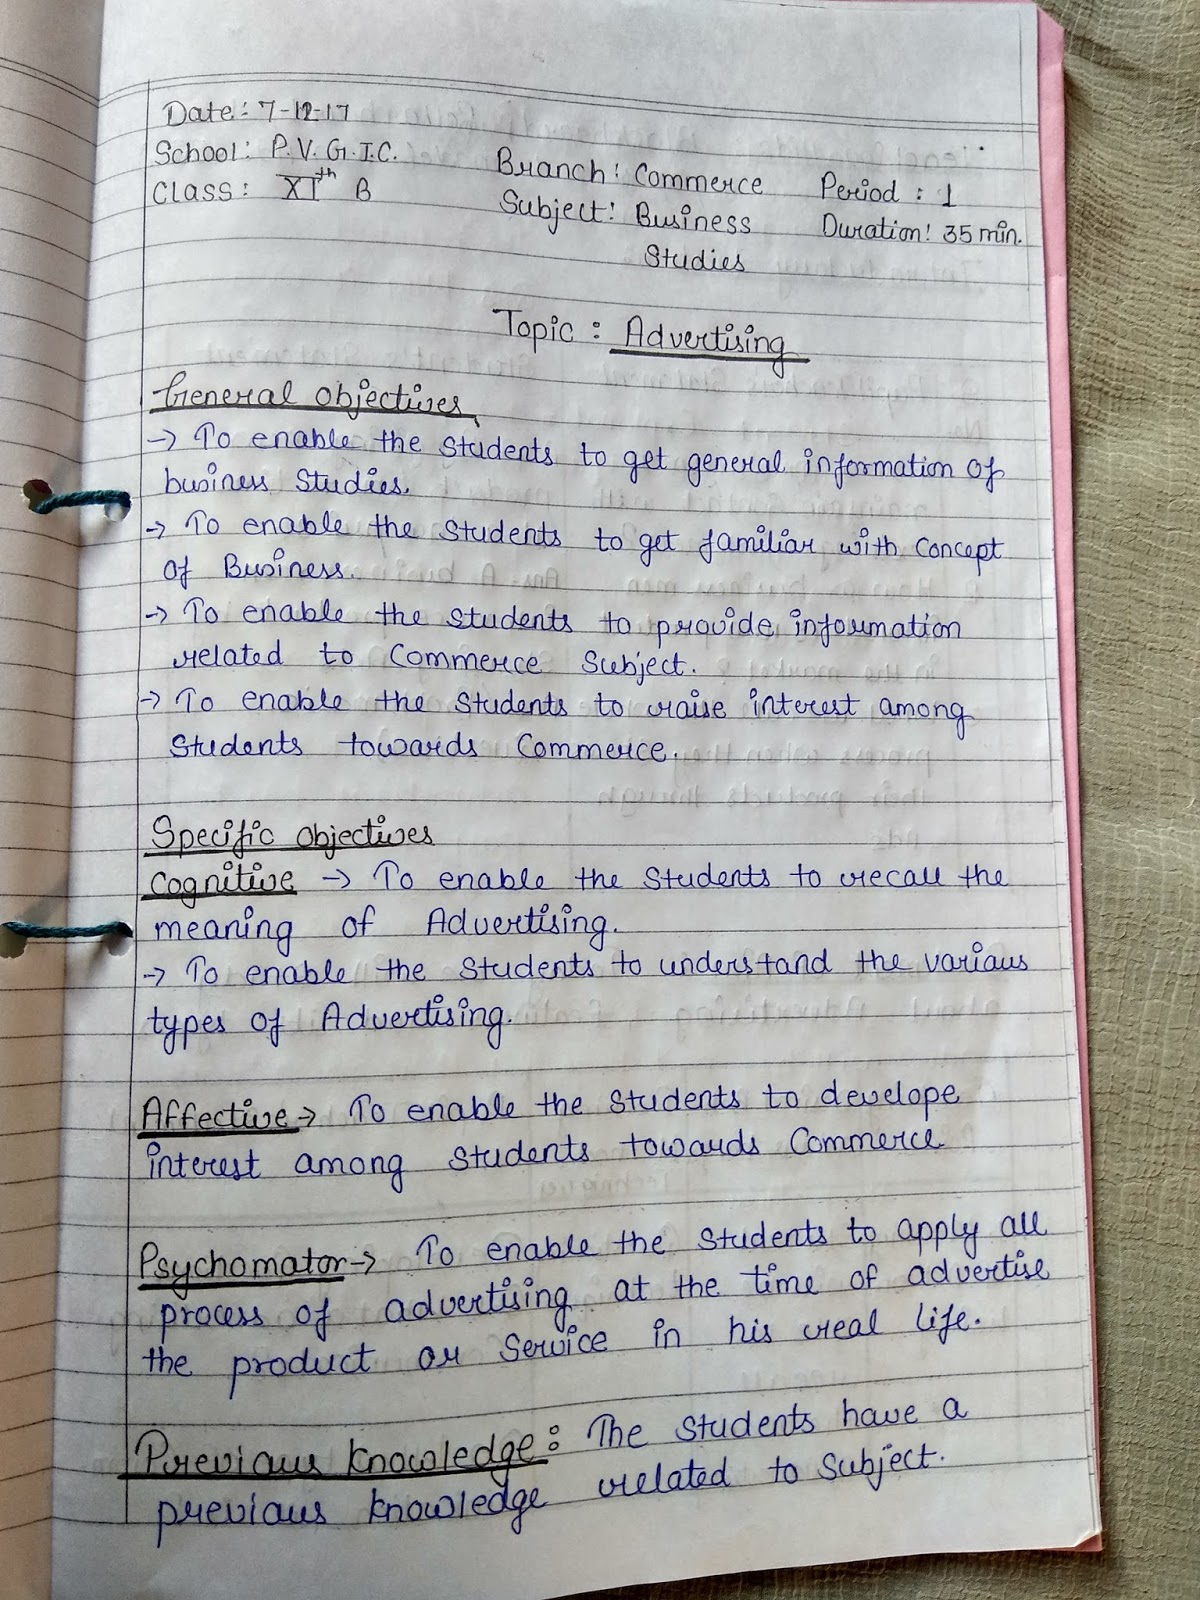 Date: 7-12-17
School: P.V.G.I.C.
Class: XIth B
Branch: Commerce
Subject: Business
Studies
Period : 1
Duration: 35 min.
Topic : Advertising
General objectives
→ To enable the students to get general information of
business Studies.
→ To enable the students to get familiar with concept
of Business.
→ To enable the students to provide information
related to Commerce Subject.
→ To enable the students to raise interest among
students towards Commerce.
Specific objectives
Cognitive → To enable the students to recall the
meaning of Advertising.
→ To enable the students to understand the various
types of Advertising.
Affective → To enable the students to develope
interest among students towards Commerce
Psychomator → To enable the students to apply all
process of advertising at the time of advertise
the product or Service in his real life.
Previous knowledge : The students have a
previous knowledge related to Subject.